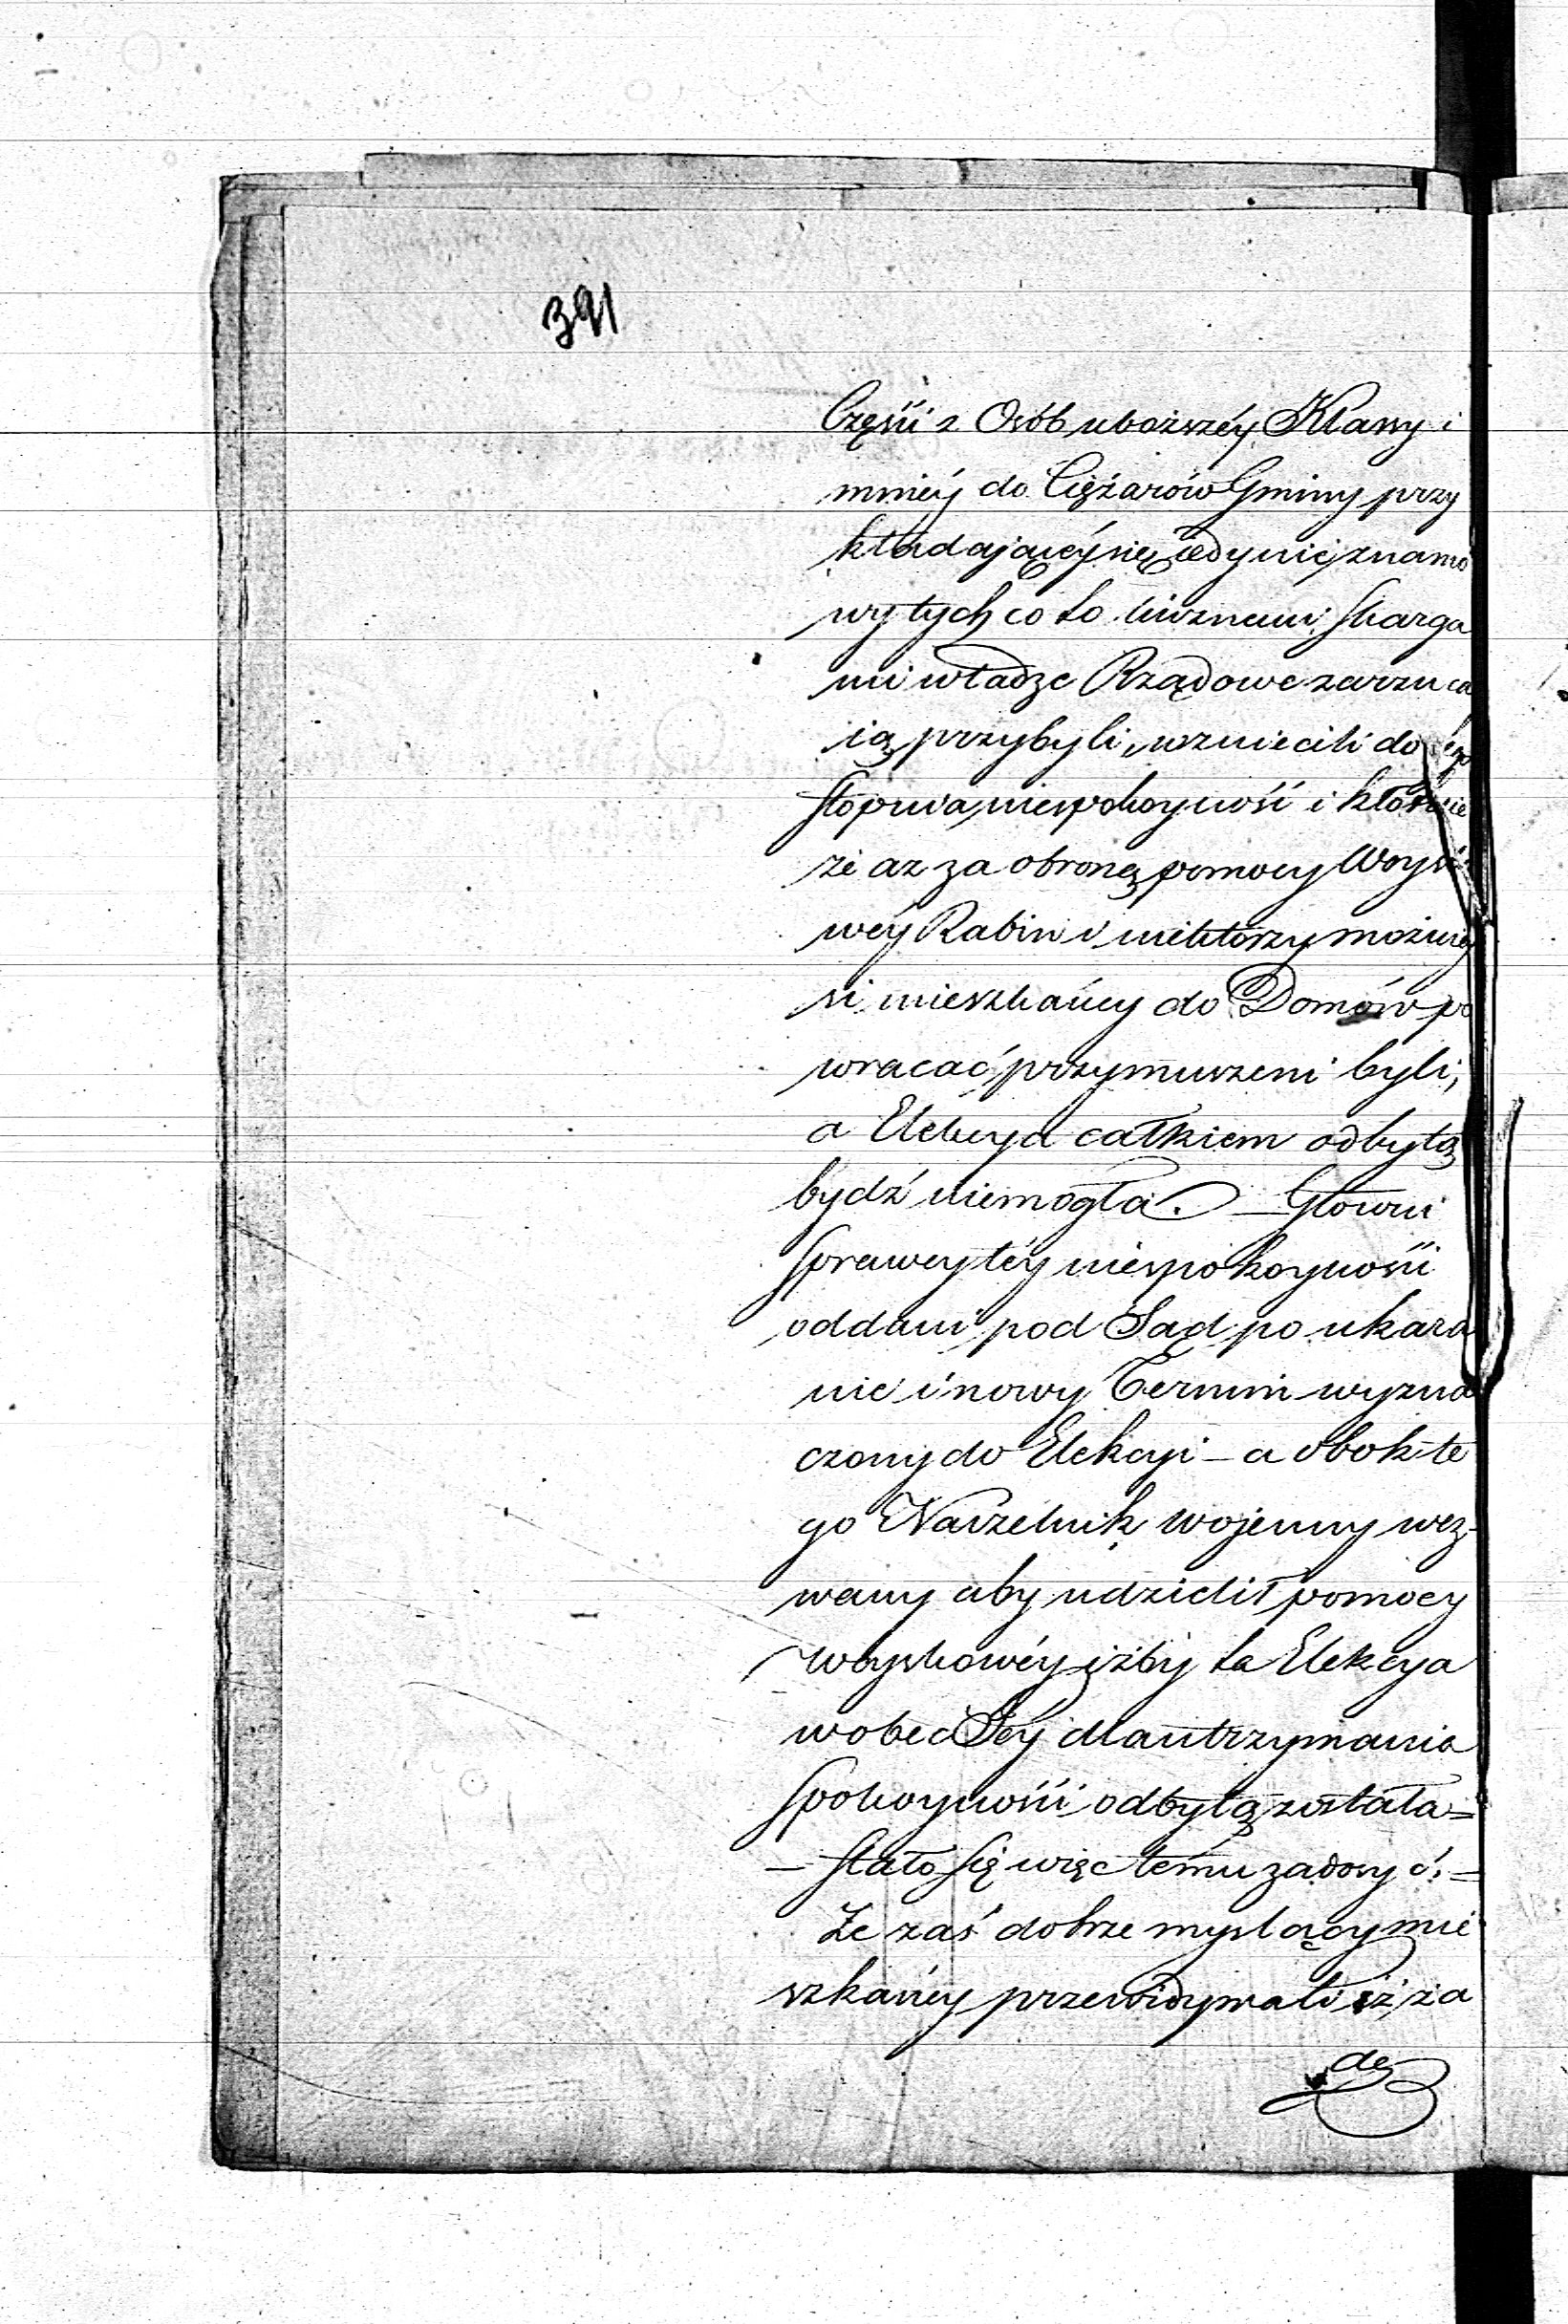 391
Części z Osób uboższéy Klassy i
mniéy do Ciężarów Gminy przy
kładającéy się iedynie z namo
wy tych co to licznemi skarga
mi władze Rządowe zarzuca
ią przybyli, wzniecili do
stopnia niespokoyność i kłótnie
że aż za obroną pomocy Woysko
wéy Rabin i niektórzy możniey
si mieszkańcy do Domów po
wracać przymuszeni byli,
a Elekcya całkiem odbytą
bydź niemogła. — Główni
sprawcy téy niespokoyności
oddani pod Sąd po ukara
nie i nowy Termin wyzna
czony do Elekcyi — a obok te
go Naczelnik wojenny wez-
wany aby udzielił pomocy
Woyskowéy iżby ta Elekcya
wobec Jéy dla utrzymania
spokoyności odbytą została =
— stało się więc temu zadosyć. =
Że zaś dobrze myslący mie
szkańcy przewidywali iż za